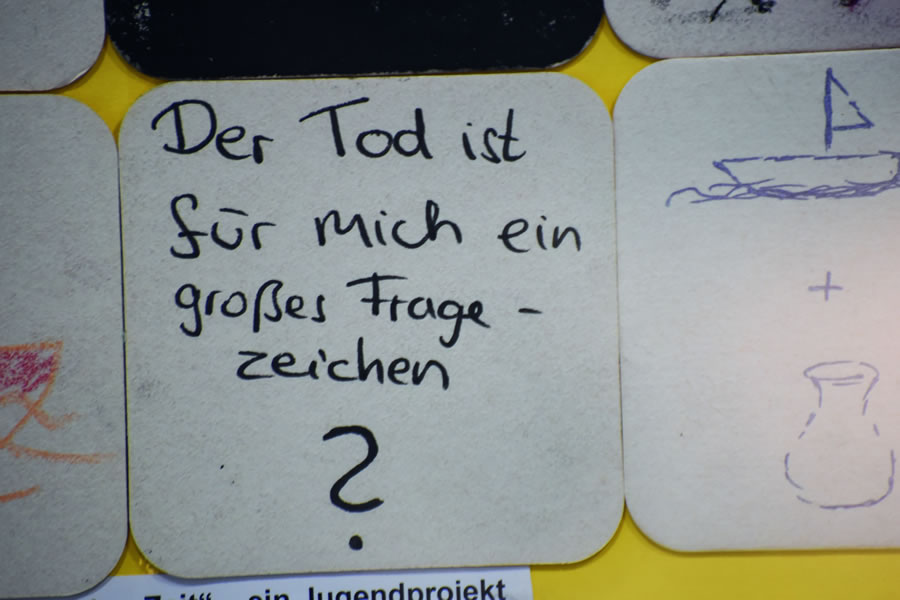 Der Tod ist
für mich ein
großes Frage-
zeichen
?
Zeit“ ein Jugendprojekt